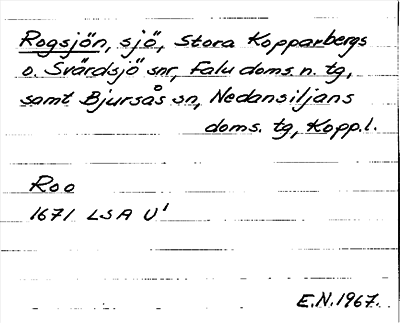 Rogsjön, sjö, Stora Kopparbergs
o. Svärdsjö snr, Falu doms. n. tg,
samt Bjursås sn, Nedansiljans
doms. tg, Kopp.l.
Roo
1671 LSA U¹
E.N. 1967.